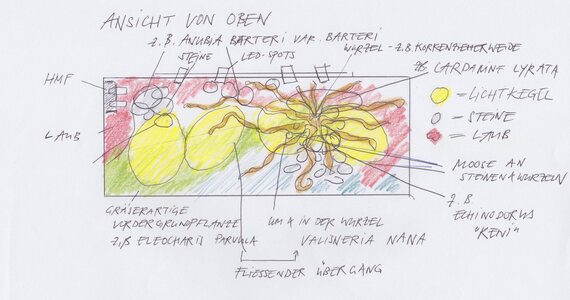 ANSICHT VON OBEN
Z.B. ANUBIA BARTERI VAR. BARTERI
STEINE
LED-SPOTS
WURZEL - Z.B. KORKENZIEHERWEIDE
HMF
ZB CARDAMNE LYRATA
= LICHTKEGEL
= STEINE
= LAUB
LAUB
MOOSE AN
STEINEN & WURZELN
Z.B.
ECHINODORUS
"KENI"
GRÄSERARTIGE
VORDERGRUNDPFLANZE
Z.B ELEOCHARIS PARVULA
UM & IN DER WURZEL
VALISNERIA NANA
FLIESSENDER ÜBERGANG